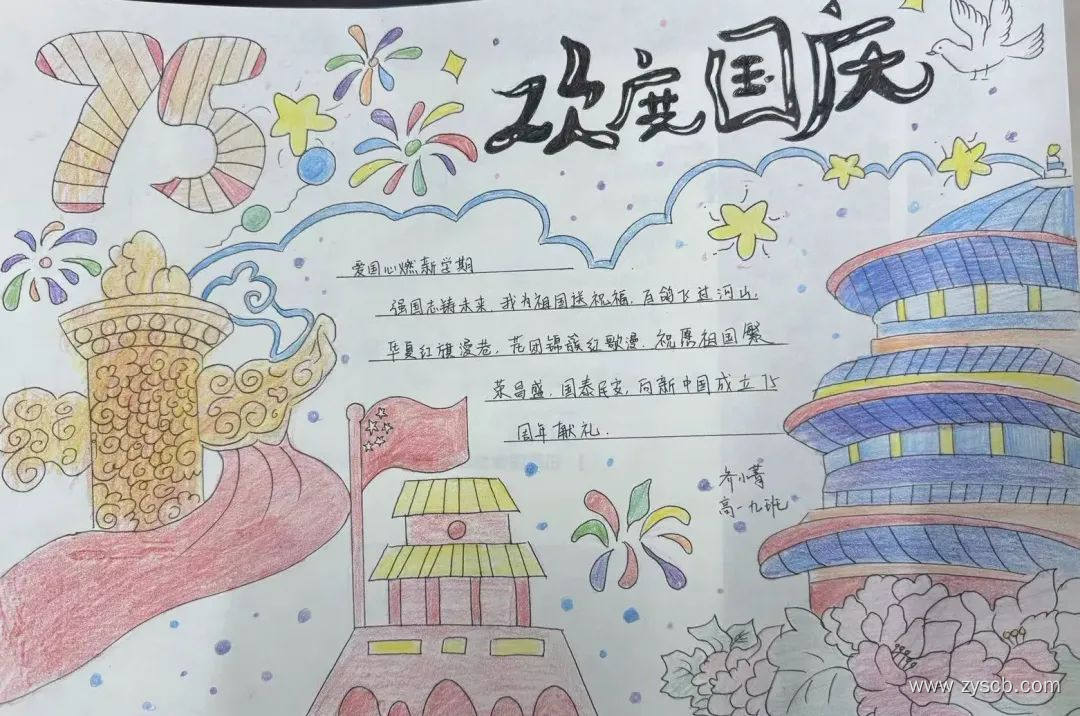 75
欢度国庆
爱国心燃新学期
强国志铸未来,我为祖国送祝福,百鸽飞过河山,
华夏红旗漫卷,花团锦簇红歌漫,祝愿祖国繁
荣昌盛,国泰民安,向新中国成立75
周年献礼.
乔小菁
高一九班
www.zyscb.com